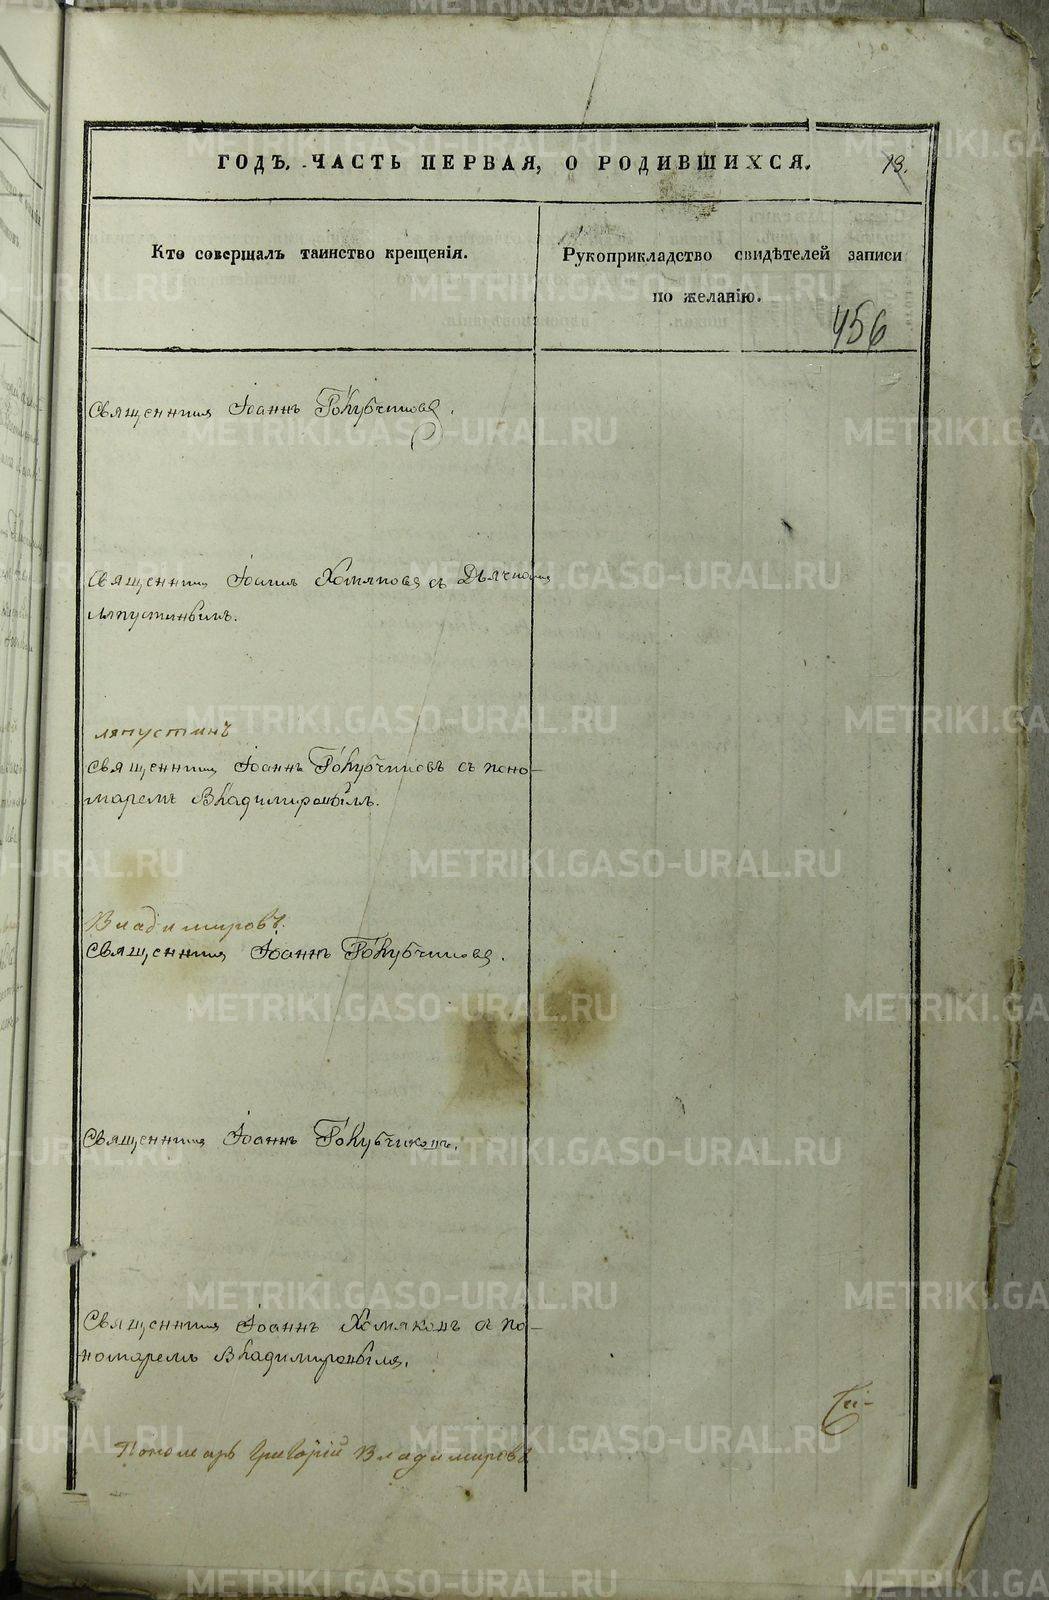 ГОДЪ. ЧАСТЬ ПЕРВАЯ, О РОДИВШИХСЯ.
13.
Кто совершалъ таинство крещенія.
Рукоприкладство свидѣтелей записи
по желанію.
456
Священникъ Іоаннъ Голубчиковъ.
Священникъ Іоаннъ Хомяковъ съ Дьячкомъ
Ляпустинымъ.
Ляпустинъ
Священникъ Іоаннъ Голубчиковъ съ поно-
маремъ Владимировымъ.
Владимировъ.
Священникъ Іоаннъ Голубчиковъ.
Священникъ Іоаннъ Голубчиковъ.
Священникъ Іоаннъ Хомяковъ съ по-
номаремъ Владимировымъ.
Пономарь Григорій Владимировъ
METRIKI.GASO-URAL.RU